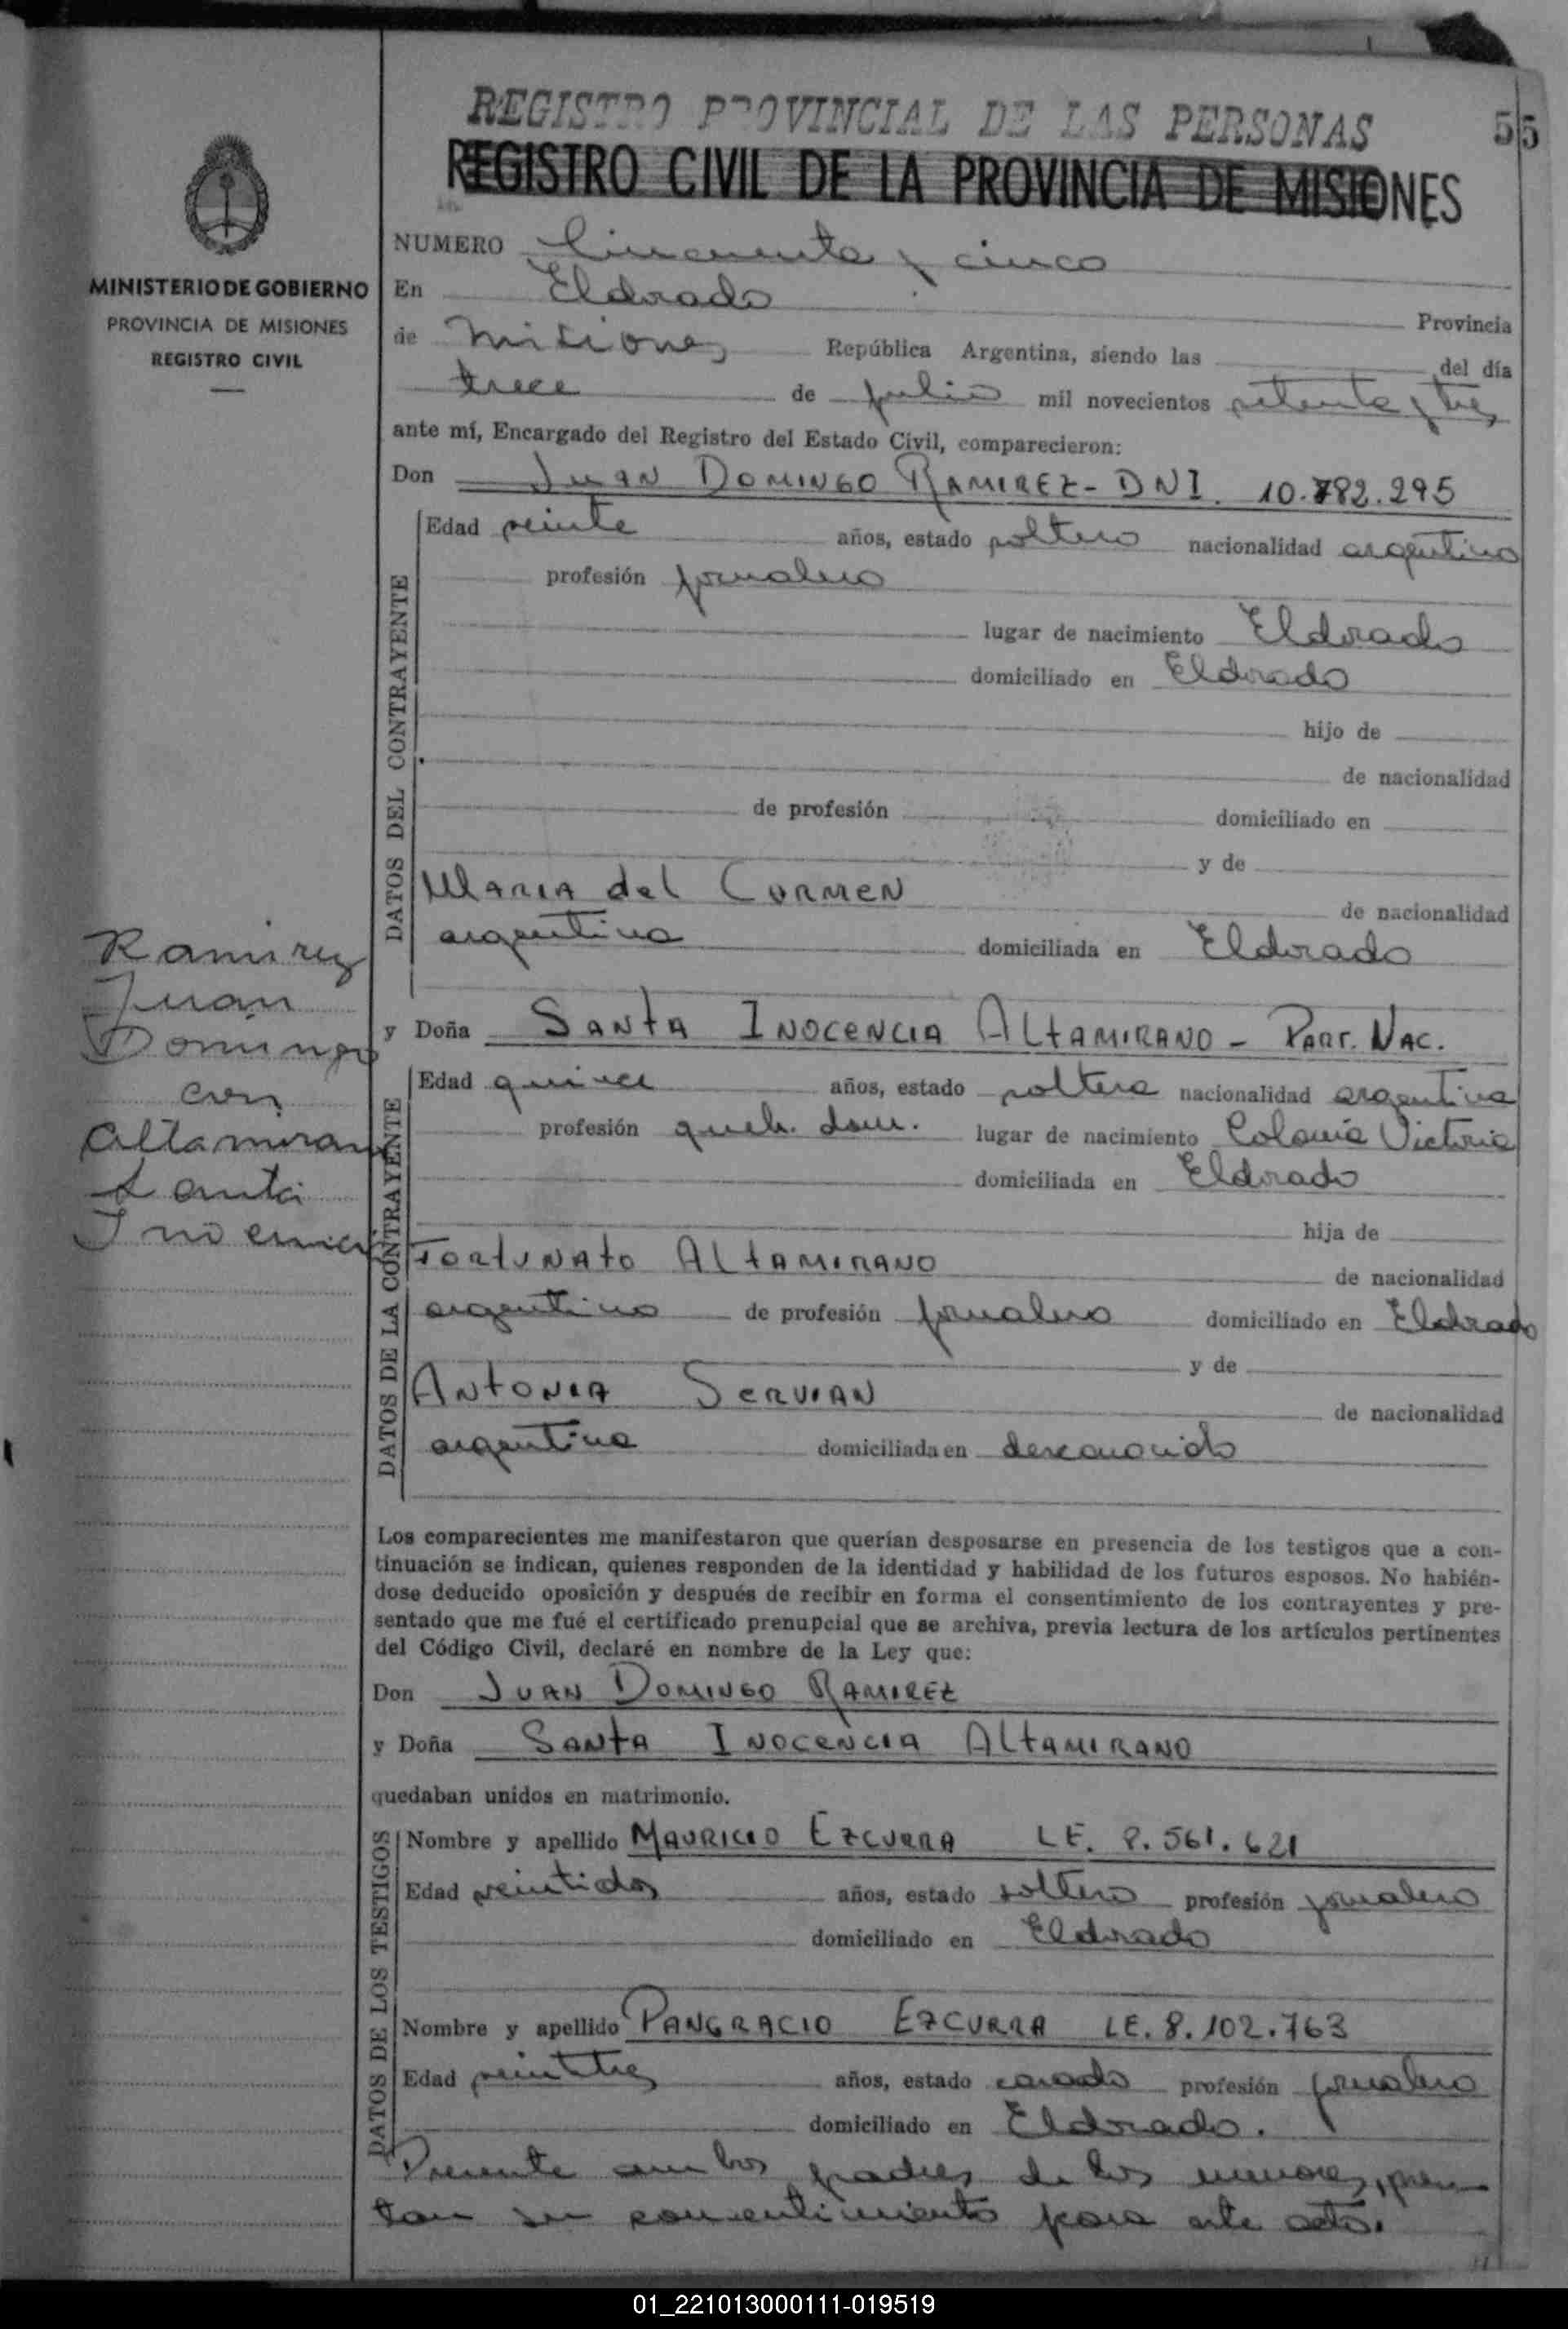 REGISTRO PROVINCIAL DE LAS PERSONAS
55
REGISTRO CIVIL DE LA PROVINCIA DE MISIONES
MINISTERIO DE GOBIERNO
PROVINCIA DE MISIONES
REGISTRO CIVIL
NUMERO Cincuenta y cinco
En Eldorado Provincia
de Misiones República Argentina, siendo las del día
trece de julio mil novecientos setenta y tres
ante mí, Encargado del Registro del Estado Civil, comparecieron:
Don JUAN DOMINGO RAMIREZ - DNI. 10.782.295
DATOS DEL CONTRAYENTE
Edad veinte años, estado soltero nacionalidad argentino
profesión jornalero
lugar de nacimiento Eldorado
domiciliado en Eldorado
hijo de
de nacionalidad
de profesión domiciliado en
y de
MARIA del CARMEN de nacionalidad
argentina domiciliada en Eldorado
Ramirez
Juan
Domingo
con
Altamirano
Santa
Inocencia
y Doña SANTA INOCENCIA ALTAMIRANO - PART. NAC.
DATOS DE LA CONTRAYENTE
Edad quince años, estado soltera nacionalidad argentina
profesión queh. dom. lugar de nacimiento Colonia Victoria
domiciliada en Eldorado
hija de
FORTUNATO ALTAMIRANO de nacionalidad
argentino de profesión jornalero domiciliado en Eldorado
y de
ANTONIA SERVIAN de nacionalidad
argentina domiciliada en desconocido
Los comparecientes me manifestaron que querían desposarse en presencia de los testigos que a con-
tinuación se indican, quienes responden de la identidad y habilidad de los futuros esposos. No habién-
dose deducido oposición y después de recibir en forma el consentimiento de los contrayentes y pre-
sentado que me fué el certificado prenupcial que se archiva, previa lectura de los artículos pertinentes
del Código Civil, declaré en nombre de la Ley que:
Don JUAN DOMINGO RAMIREZ
y Doña SANTA INOCENCIA ALTAMIRANO
quedaban unidos en matrimonio.
DATOS DE LOS TESTIGOS
Nombre y apellido MAURICIO EZCURRA LE. 8.561.621
Edad veintidos años, estado soltero profesión jornalero
domiciliado en Eldorado
Nombre y apellido PANGRACIO EZCURRA LE. 8.102.763
Edad veintitres años, estado casado profesión jornalero
domiciliado en Eldorado.
Presente ambos padres de los menores, pres-
tan su consentimiento para este acto.
01_221013000111-019519